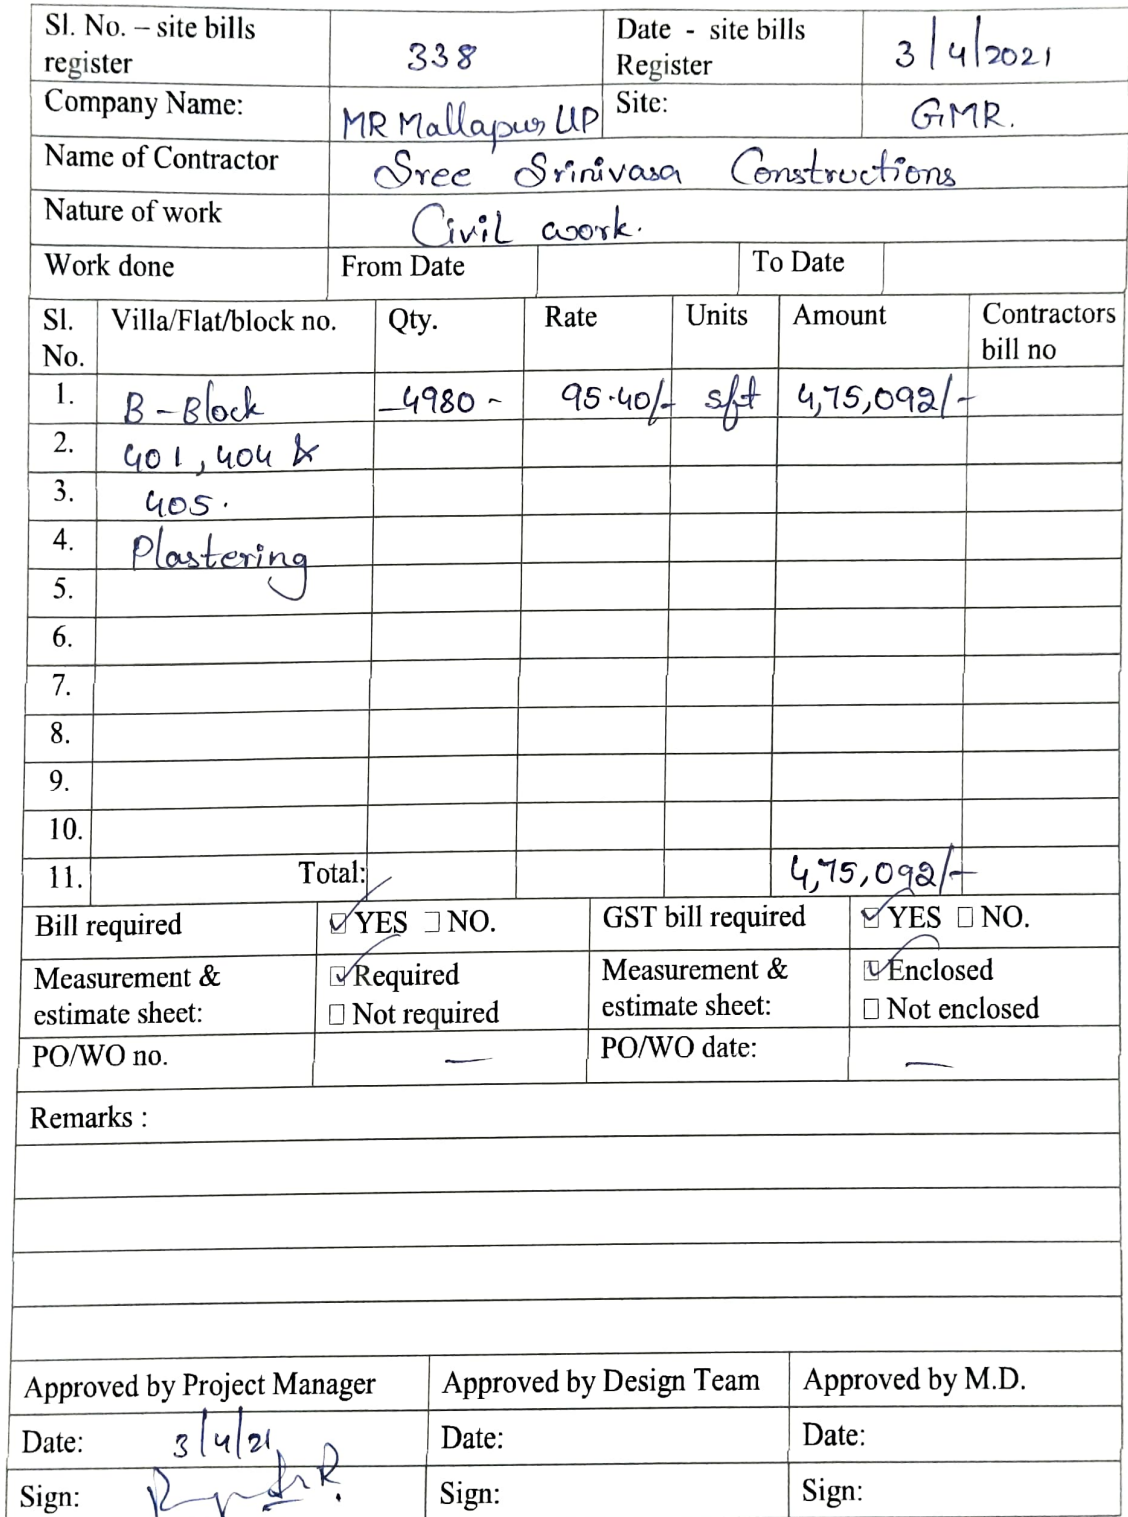 Sl. No. – site bills register 338 Date - site bills Register 3/4/2021
Company Name: MR Mallapur LLP Site: GMR.
Name of Contractor Sree Srinivasa Constructions
Nature of work Civil work.
Work done From Date To Date
Sl. No. Villa/Flat/block no. Qty. Rate Units Amount Contractors bill no
1. B-Block 4980 - 95.40/- sft 4,75,092/-
2. 401, 404 &
3. 405.
4. Plastering
5.
6.
7.
8.
9.
10.
11. Total: 4,75,092/-
Bill required ☑ YES ☐ NO. GST bill required ☑ YES ☐ NO.
Measurement & estimate sheet: ☑ Required ☐ Not required Measurement & estimate sheet: ☑ Enclosed ☐ Not enclosed
PO/WO no. — PO/WO date: —
Remarks :
Approved by Project Manager Approved by Design Team Approved by M.D.
Date: 3/4/21 Date: Date:
Sign: Sign: Sign: